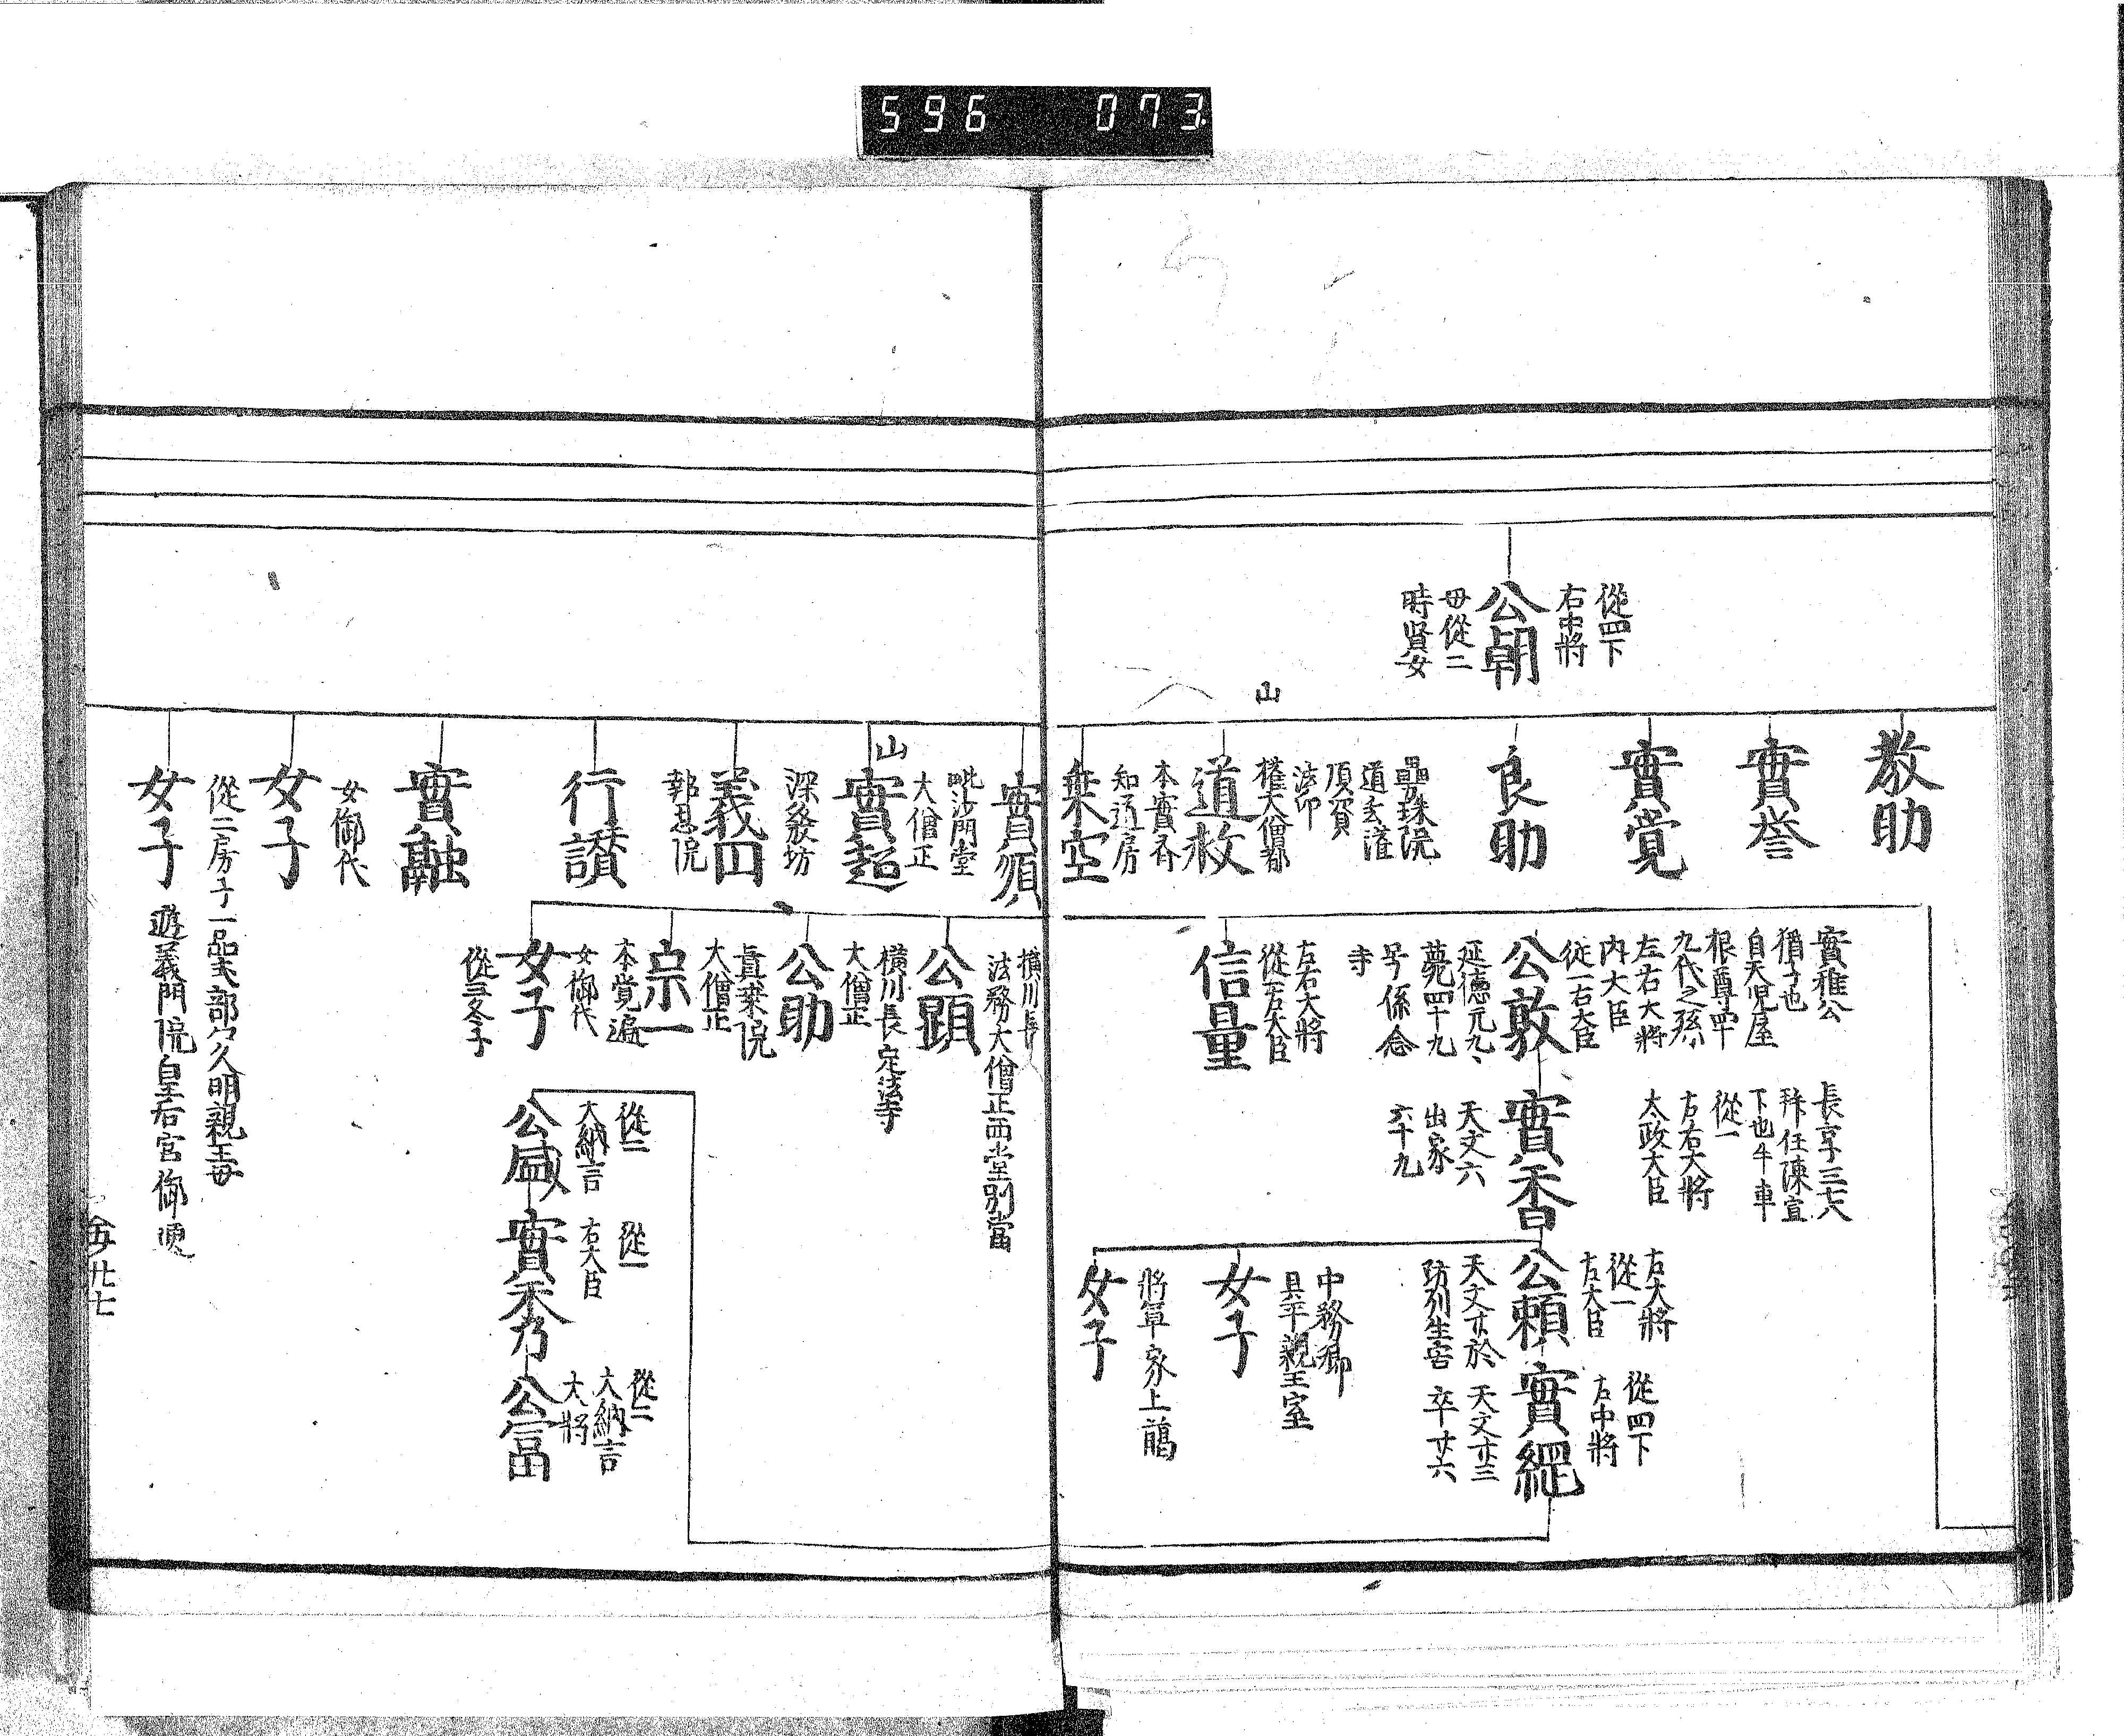 596 073
從四下
右中將
公朝
母從二
時賢女
教助
實誉
實覚
良助
曼珠院
道玄灌
頂資
山
法印
権大僧都
道教
本實
知道房
乗空
實雅公
猶子也
自天児屋
根尊四十
九代之孫
左右大將
内大臣
從一右大臣
公敦
延徳元九
薨四十九
号係念
寺
左右大將
從一右大臣
信量
長享三七六
拜任陳宣
下也牛車
從一
左右大將
太政大臣
實香
天文六
出家
六十九
右大將
從一
左大臣
公頼
天文廿於
防列生害
從四下
左中將
實綱
天文廿三
卒廿六
中務卿
具平親王室
女子
將軍家上﨟
女子
實順
橫川長
法務大僧正西堂別當
毗沙門堂
大僧正
山
實超
深發坊
義円
報恩院
行讃
實融
女御代
女子
從二房子一品式部久明親王母
女子
遊義門院皇后宮御
公顕
橫川長定法寺
大僧正
公助
真乗院
大僧正
宗一
本覚遍
女御代
女子
從三冬子
從二
大納言
公盛
從一
右大臣
實秀
從二
大納言
大將
公冨
卅七